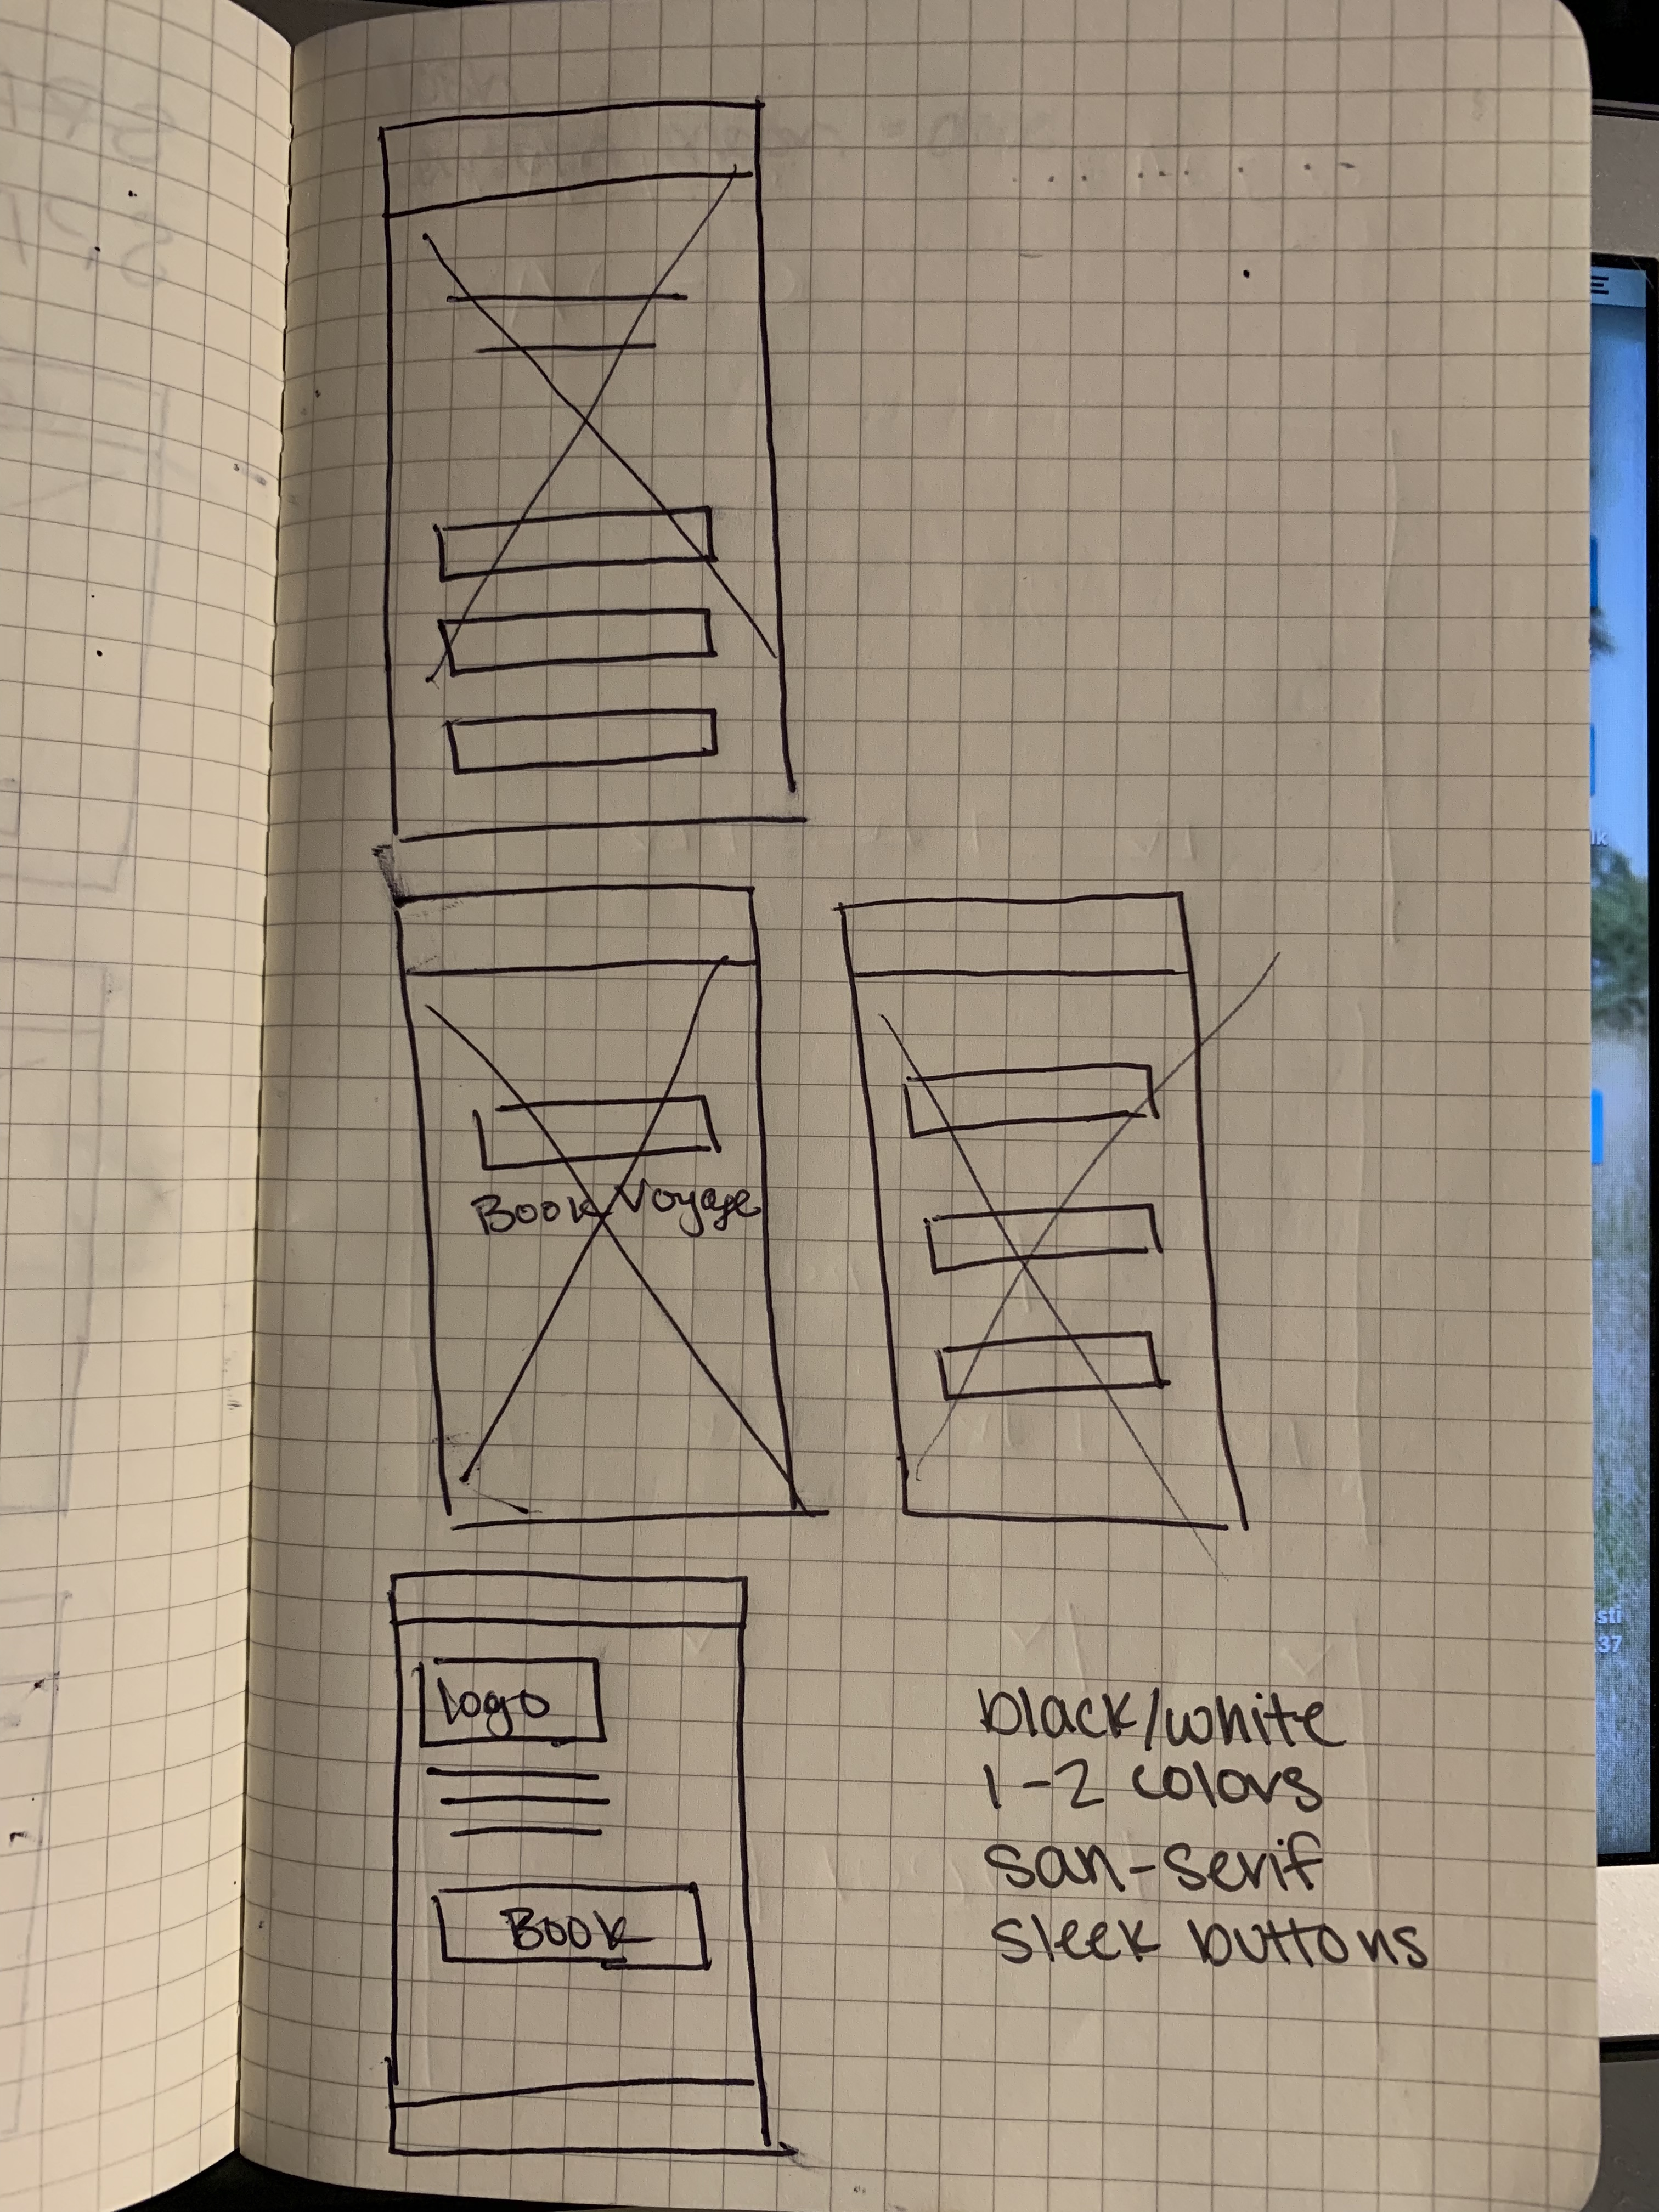 Book Voyage
logo
Book
black/white
1-2 colors
san-serif
sleek buttons
sti
37